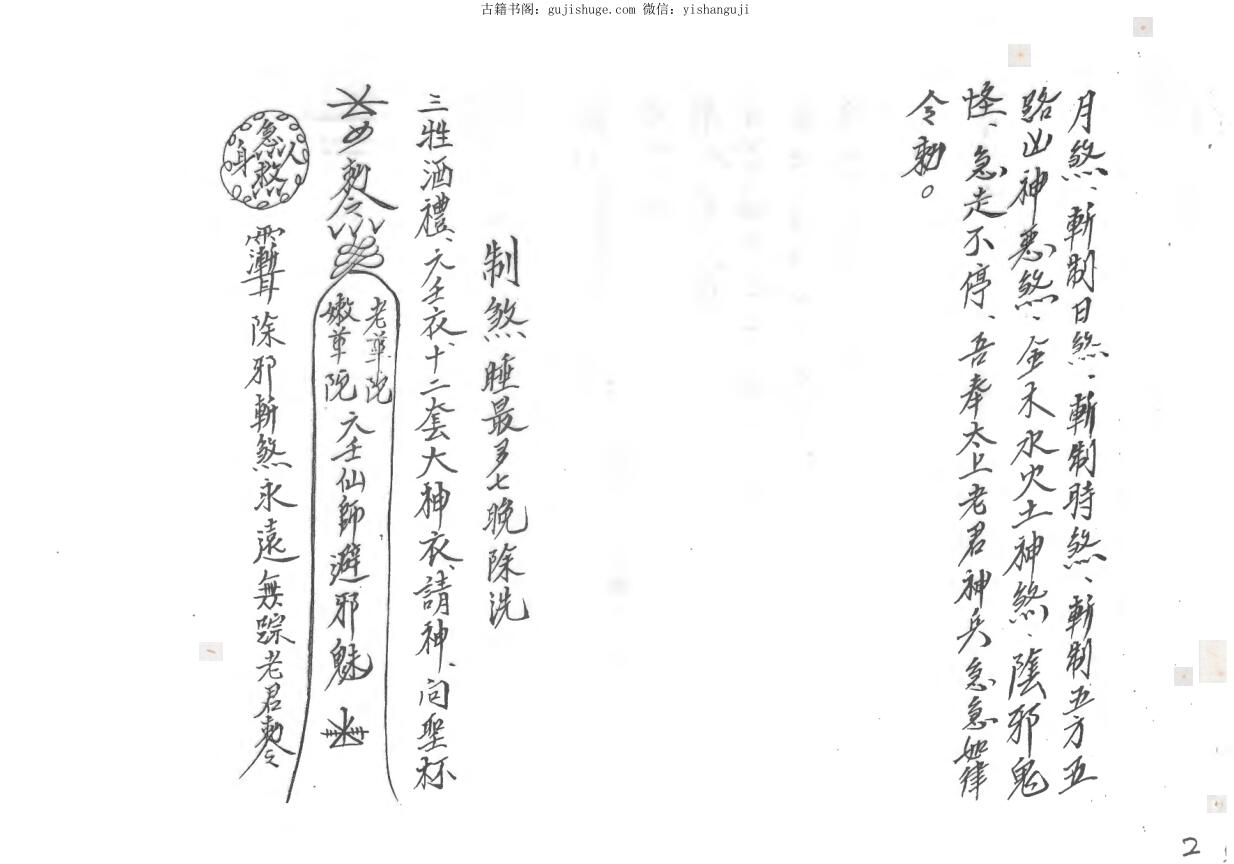 古籍书阁：gujishuge.com 微信：yishanguji
月煞、斬制日煞、斬制時煞、斬制五方五
路山神惡煞、金木水火土神煞、陰邪鬼
怪、急走不停、吾奉太上老君神兵急急如律
令勅。
制煞睡最多七晚除洗
三牲酒禮、六壬衣、十二套大神衣、請神、问聖杯
勅令
老草院
嫩草院
六壬仙師避邪魅
急救
人身
除邪斬煞永遠無踪老君勅令
2